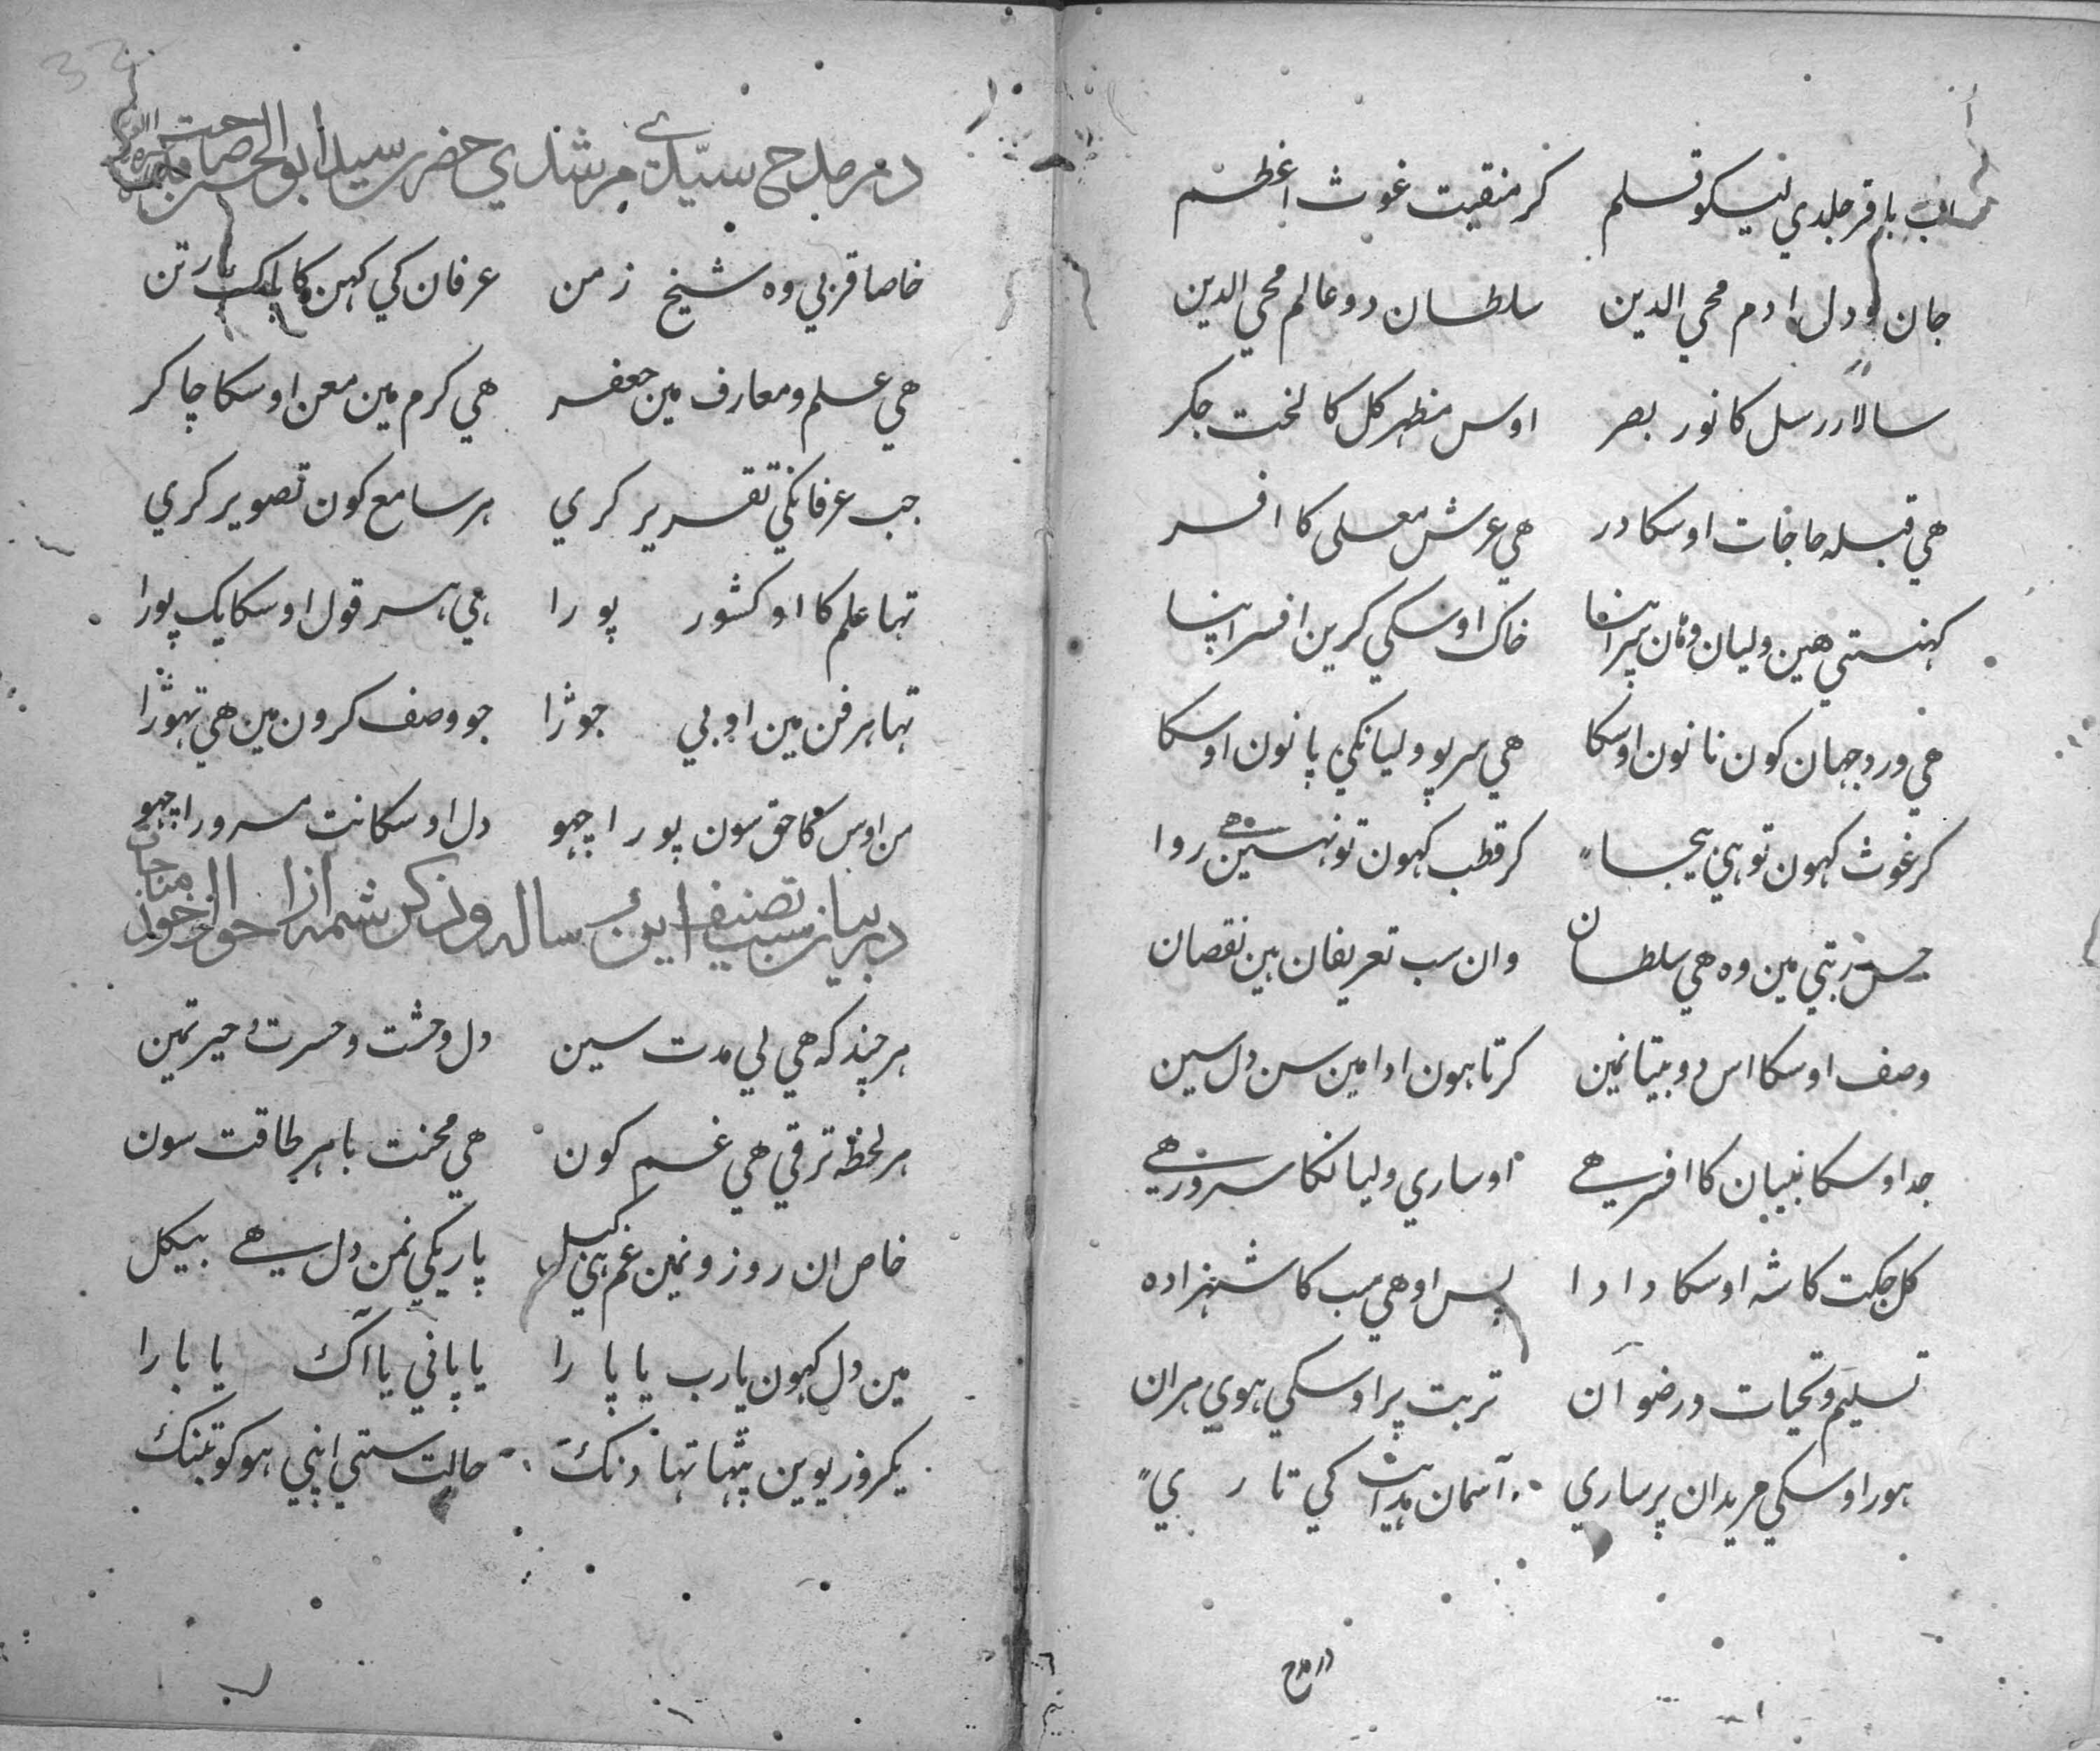 اب باقر جلدي ليكو قلم کر منقبت غوث اعظم
جان و دل ادم محي الدين سلطان دو عالم محي الدين
سالار رسل کا نور بصر اوس مظهر کل کا لخت جکر
هي قبله حاجات اوسکا در هي عرش معلی کا افسر
کہنستي هين وليان وہان سر اپنا خاک اوسکي کرين افسر اپنا
هي ورد جہان کون نانون اوسکا هي سر پو وليانکي پانون اوسکا
کر غوث کہون تو هي بيجا کر قطب کہون تو نہين هے روا
جس رتبي مين وه هي سلطان وان سب تعريفان هين نقصان
وصف اوسکا اس دو بيتانمين کرتا هون ادا مين سن دل سين
جد اوسکا نبيان کا افسر هے او ساري وليانکا سرور هے
کل جکت کا شه اوسکا دادا پس او هي سب کا شہزاده
تسليم و تحيات و رضوان تربت پر اوسکي هوي هر ان
هور اوسکي مريدان پر ساري آسمان هدايت کي تاري
در مدح
در مدح سيدي مرشدي حضرت سيد ابوالحسن صاحب
خاصا قربي وه شيخ زمن عرفان کي کہن کا پاک رتن
هي علم و معارف مين جعفر هي کرم مين معن اوسکا چاکر
جب عرفانکي تقرير کري هر سامع کون تصوير کري
تہا علم کا او کشور پورا هي هر قول اوسکا يک پورا
تہا هر فن مين او بي جوڑا جو وصف کرون مين هي تہوڑا
من اوس کا حق سون پورا اچہو دل اوسکا نت مسرور اچہو
در بيان سبب تصنيف اين رساله و ذکر شمه از احوال خود
هر چند که هي لي مدت سين دل وحشت و حسرت و حيرتمين
هر لحظه ترقي هي غم کون هي محنت باهر طاقت سون
خاص ان روز ونمين غم هي کبل پاريکي نمن دل هے بيکل
مين دل کہون يارب يا پارا يا پاني يا آک يا بارا
يکروز يوين بيٹہا تہا دنک حالت ستي اپني هو کو تنک